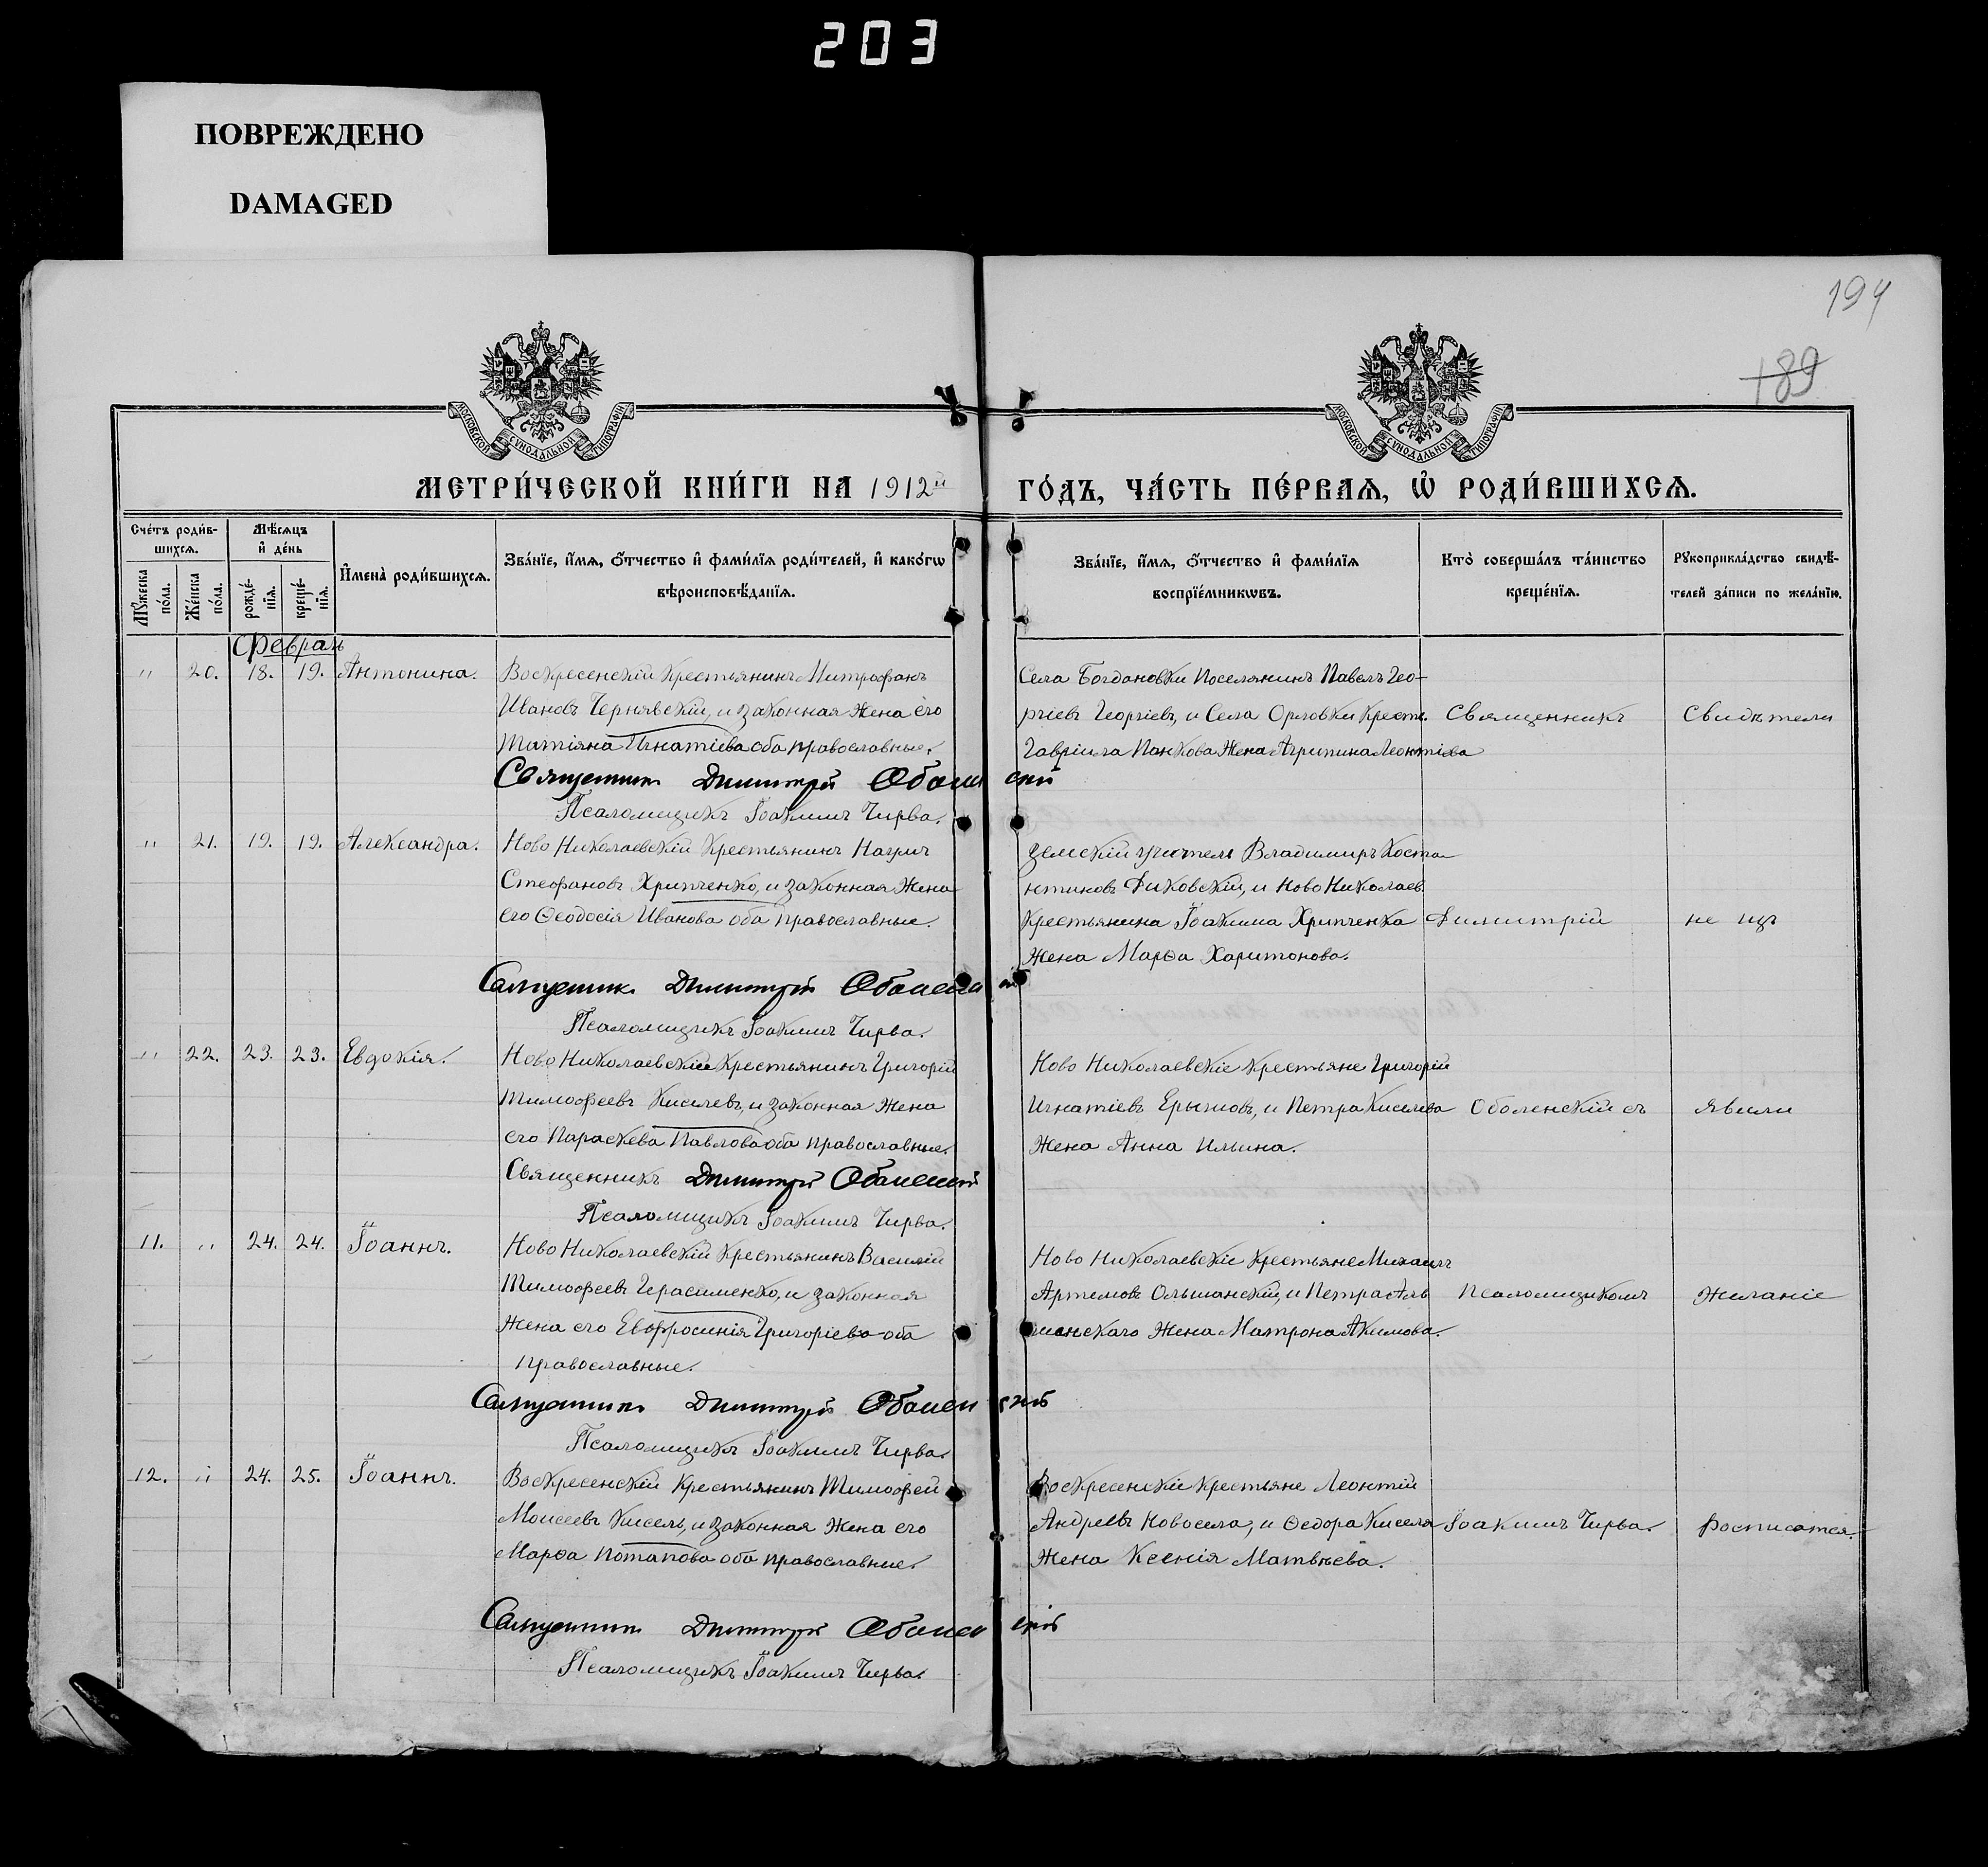 203
ПОВРЕЖДЕНО
DAMAGED
194
189
МОСКОВСКОЙ СѴНОДАЛЬНОЙ ТИПОГРАФІИ
МОСКОВСКОЙ СѴНОДАЛЬНОЙ ТИПОГРАФІИ
МЕТРИ́ЧЕСКОЙ КНИ́ГИ НА 1912й ГО́ДЪ, ЧА́СТЬ ПЕ́РВАѦ, Ѡ҆ РОДИ́ВШИХСѦ.
Сче́тъ роди́в-
шихсѧ.
Мꙋ́жеска по́ла.
Же́нска по́ла.
Мѣ́сѧцъ
и҆ де́нь
рожде́-
нїѧ.
креще́-
нїѧ.
И҆мена̀ роди́вшихсѧ.
Зва́нїе, и҆́мѧ, ѻ҆́тчество и҆ фами́лїѧ роди́телей, и҆ како́гѡ
вѣроисповѣ́данїѧ.
Зва́нїе, и҆́мѧ, ѻ҆́тчество и҆ фами́лїѧ
воспрїе́мникѡвъ.
Кто̀ соверша́лъ та́инство
креще́нїѧ.
Рꙋкоприкла́дство свидѣ́-
телей за́писи по жела́нїю.
Февраль
" 20. 18. 19. Антонина. Воскресенскій Крестьянинъ Митрофанъ
Ивановъ Чернявскій, и законная жена его
Татіяна Игнатіева оба православные.
Села Богдановки поселянинъ Павелъ Гео-
ргіевъ Георгіевъ, и Села Орловки Крестъ.
Гавріила Панкова жена Агрипина Леонтіева
Священникъ Димитрій Оболенскій
Псаломщикъ Іоакимъ Чирва.
" 21. 19. 19. Александра. Ново Николаевскій Крестьянинъ
Стефановъ Хрипченко, и законная жена
его Ѳеодосія Иванова оба православные.
Земскій учитель Владимиръ Конста
нтиновъ Диковскій, и Ново Николаев.
Крестьянина Іоакима Хрипченка
жена Марѳа Харитонова.
Священникъ Димитрій Оболенскій
Псаломщикъ Іоакимъ Чирва.
" 22. 23. 23. Евдокія. Ново Николаевскій Крестьянинъ Григорій
Тимоѳеевъ Киселевъ, и законная жена
его Параскева Павлова оба православные.
Ново Николаевскіе Крестьяне Григорій
Игнатіевъ, и Петра Киселева
жена Анна Ильина.
Священникъ Димитрій Оболенскій
Псаломщикъ Іоакимъ Чирва.
11. " 24. 24. Іоаннъ. Ново Николаевскій Крестьянинъ Василій
Тимоѳеевъ Герасименко, и законная
жена его Евфросинія Григоріева оба
православные.
Ново Николаевскіе Крестьяне Михаилъ
Артемовъ Ольшанскій, и Петра Оль
шанскаго жена Матрона Акимова.
Священникъ Димитрій Оболенскій
Псаломщикъ Іоакимъ Чирва.
12. " 24. 25. Іоаннъ. Воскресенскій Крестьянинъ Тимоѳей
Моисеевъ Кисель, и законная жена его
Марѳа Потапова оба православные.
Воскресенскіе Крестьяне Леонтій
Андреевъ Новосела, и Ѳедора Киселя
жена Ксенія Матвѣева.
Священникъ Димитрій Оболенскій
Псаломщикъ Іоакимъ Чирва.
Священникъ
Димитрій
Оболенскій съ
Псаломщикомъ
Іоакимъ Чирва.
Свидѣтели
не изъ
явили
желаніе
росписатся.